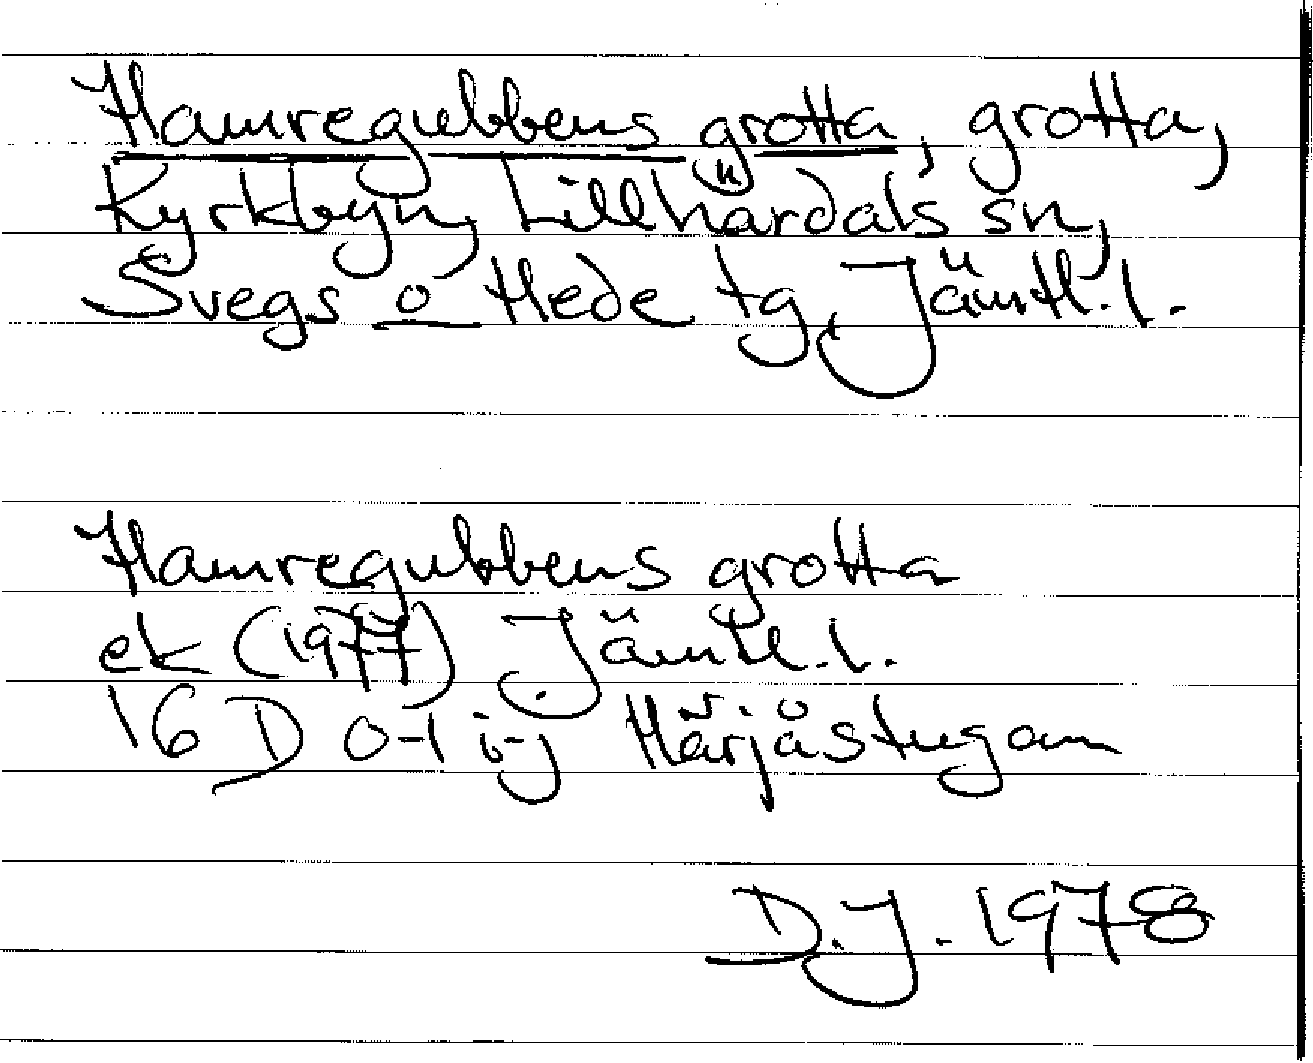 Hamregubbens grotta, grotta,
Kyrkbyn, Lillhärdals sn,
Svegs o Hede tg, Jämtl.l.
Hamregubbens grotta
ek (1977) Jämtl.l.
16 D 0-1 i-j Härjåstugan
D.J. 1978